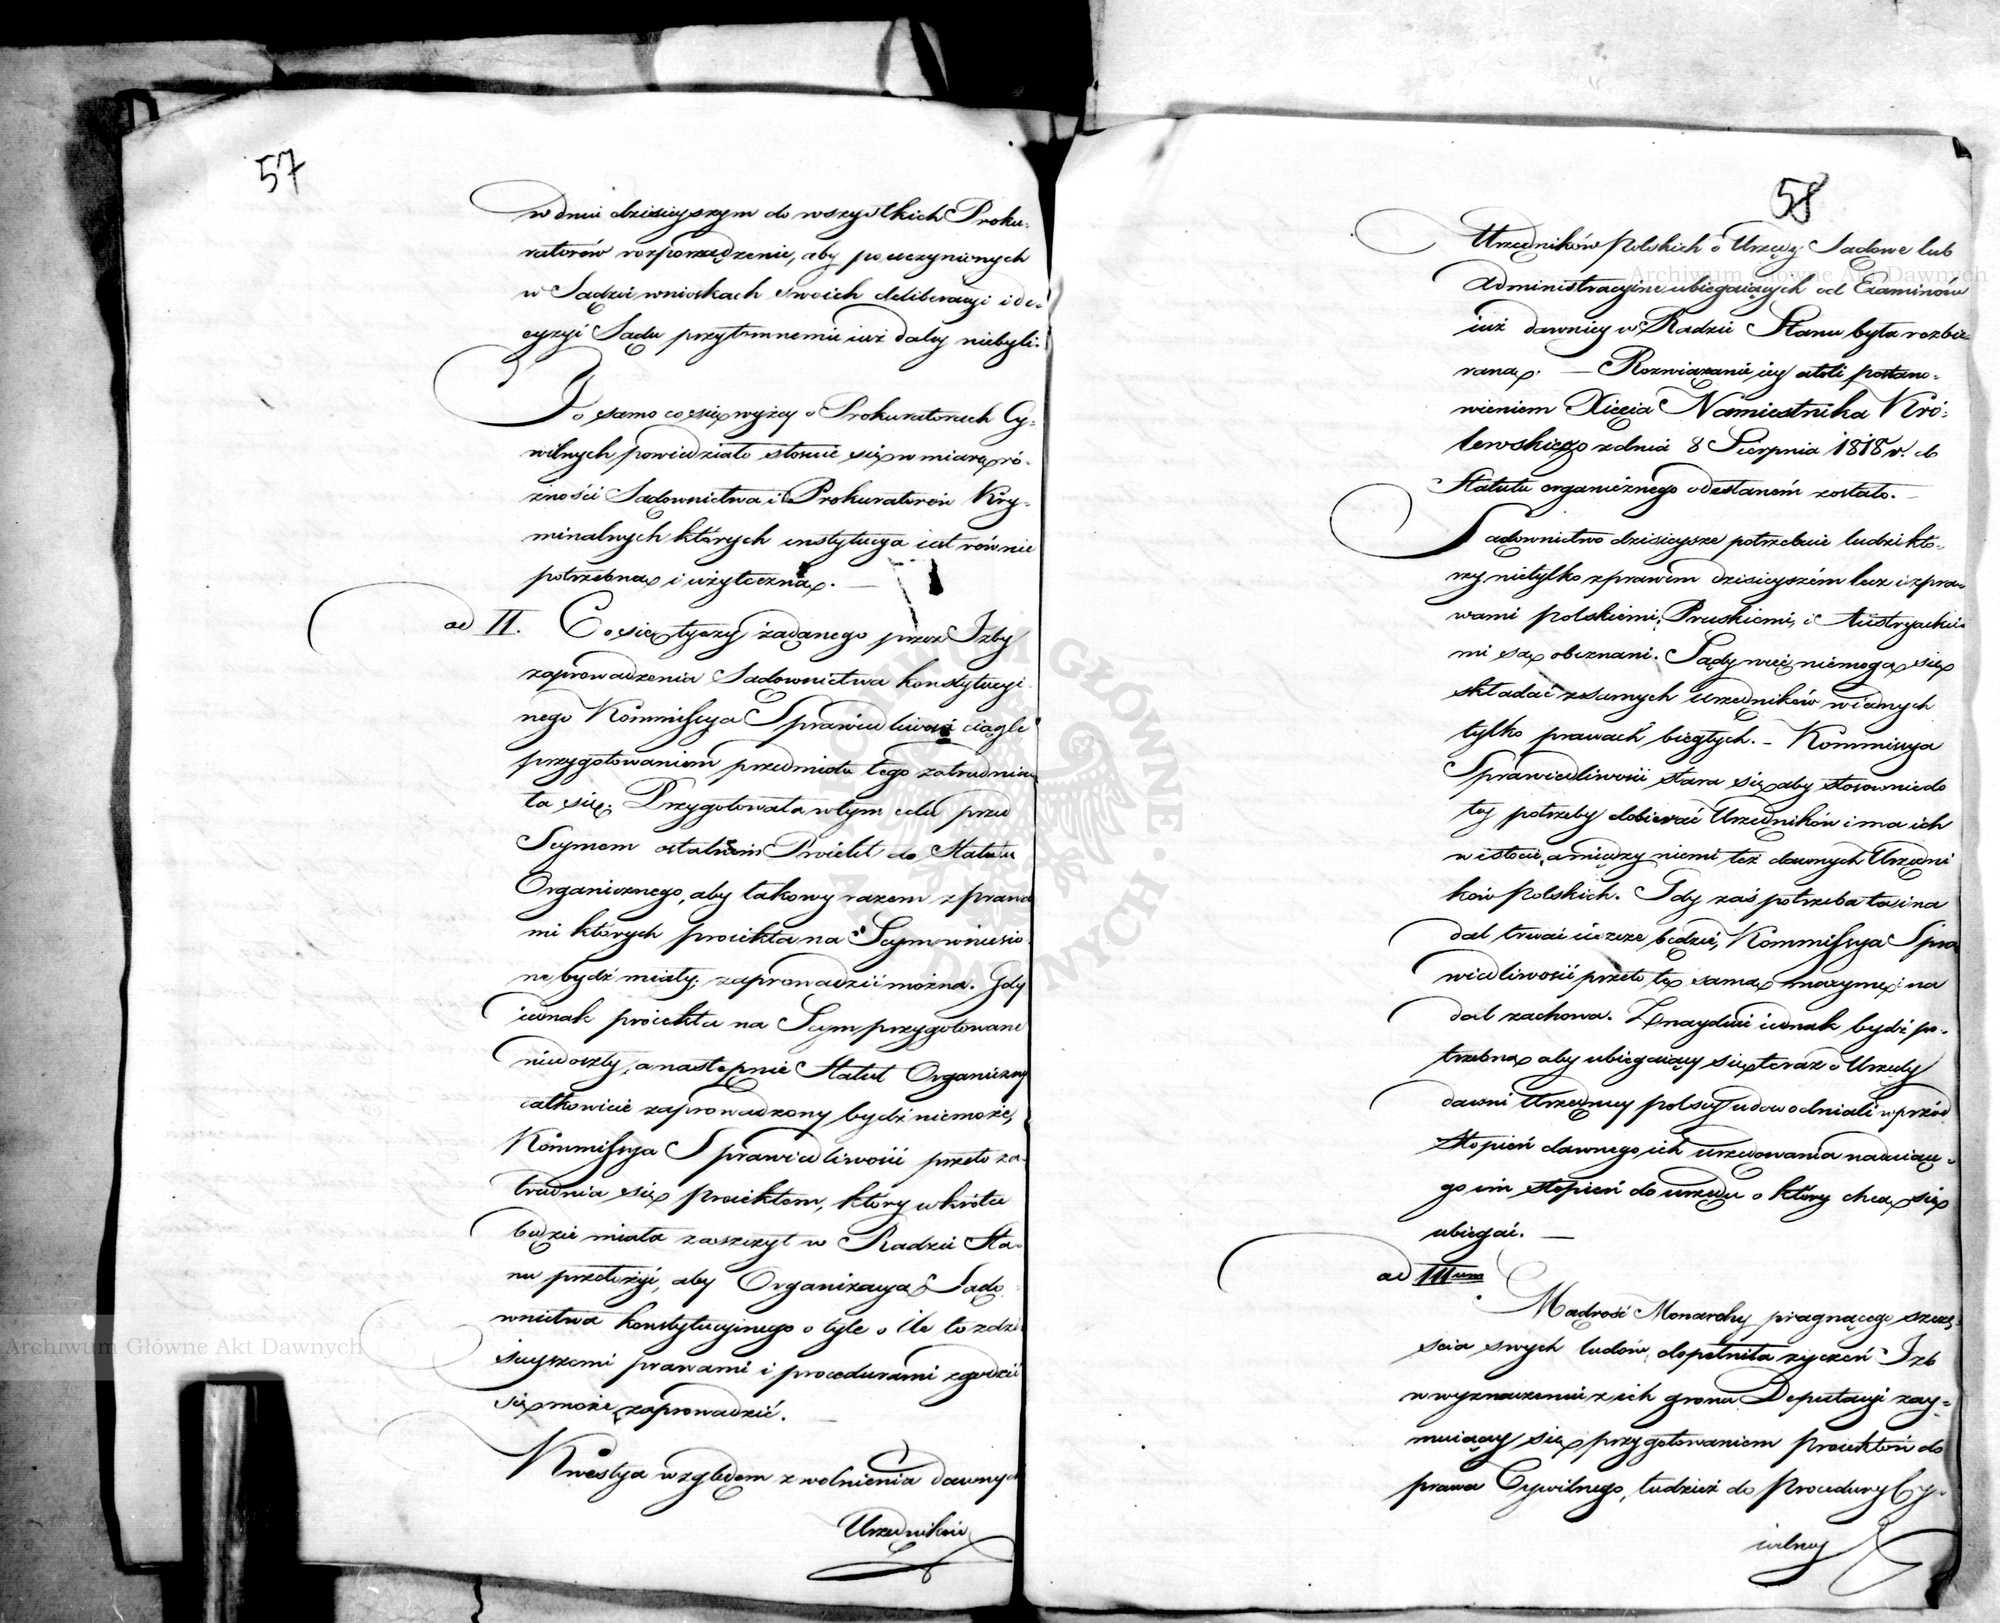 57
w dniu dzisieyszym do wszystkich Proku-
ratorów rozporządzenie, aby po uczynionych
w Sądzie wnioskach swoich deliberacyi i de-
cyzyi Sądu przytomnemi iuż daley niebyli.
To samo co się wyżey o Prokuratorach Cy-
wilnych powiedziało stosuie się w miarę ró-
żności Sądownictwa i Prokuratorów Kry-
minalnych których instytucya iest równie
potrzebną i użyteczną. —
ad II. Co się tyczy żądanego przez Izby
zaprowadzenia Sądownictwa konstytucyi-
nego Kommissya Sprawiedliwości ciągle
przygotowaniem przedmiotu tego zatrudnia-
ła się. Przygotowała w tym celu przed
Seymem ostatnim Proiekt do Statutu
Organicznego, aby takowy razem z prawa
mi których proiekta na Seym wniesio-
ne bydź miały, zaprowadzić można. Gdy
iednak proiekta na Seym przygotowane
niedoszły, a następnie Statut Organiczny
całkowicie zaprowadzony bydź niemoże,
Kommissya Sprawiedliwości przeto za-
trudnia się proiektem, który wkrótce
będzie miała zaszczyt w Radzie Sta-
nu przełożyć, aby Organizacyą Sądo-
wnictwa konstytucyjnego o tyle o ile to z dzi-
sieyszemi prawami i procedurami zgodzić
się może, zaprowadzić. —
Kwestya względem zwolnienia dawnych
Urzędników
58
Urzędników Polskich o Urzędy Sądowe lub
Administracyine ubiegaiących od Examinów
iuż dawniey w Radzie Stanu była rozbie-
raną. — Rozwiązanie iey atoli postano-
wieniem Xięcia Namiestnika Kró-
lewskiego z dnia 8 Sierpnia 1818 r. do
Statutu organicznego odesłaném zostało. —
Sądownictwo dzisieysze potrzebuie ludzi któ-
rzy nietylko z prawem dzisieyszém lecz i z pra-
wami polskiemi, Pruskiemi, i Austryackie-
mi są obeznani. Sądy więc niemogą się
składać z samych urzędników w iednych
tylko prawach biegłych. — Kommissya
Sprawiedliwości stara się aby stosownie do
tey potrzeby dobierać Urzędników i ma ich
w istocie, a między niemi też dawnych Urzędni
ków Polskich. Gdy zaś potrzeba ta i na
dal trwać ieszcze będzie, Kommissya Spra
wiedliwości przeto tę samą maxymę na
dal zachowa. Znayduie iednak bydź po-
trzebną aby ubiegaiący się teraz o Urzędy
dawni Urzędnicy polscy udowodniali wprzód
stopień dawnego ich urzędowania nadaią-
go im stopień do urzędu o który chcą się
ubiegać. —
ad IIIum
Mądrość Monarchy pragnącego szczę-
ścia swych ludów, dopełniła życzeń Izb
w wyznaczeniu z ich grona Deputacyi zay-
muiącey się przygotowaniem proiektów do
prawa Cywilnego, tudzież do Procedury Cy-
wilney
Archiwum Główne Akt Dawnych
Archiwum Główne Akt Dawnych